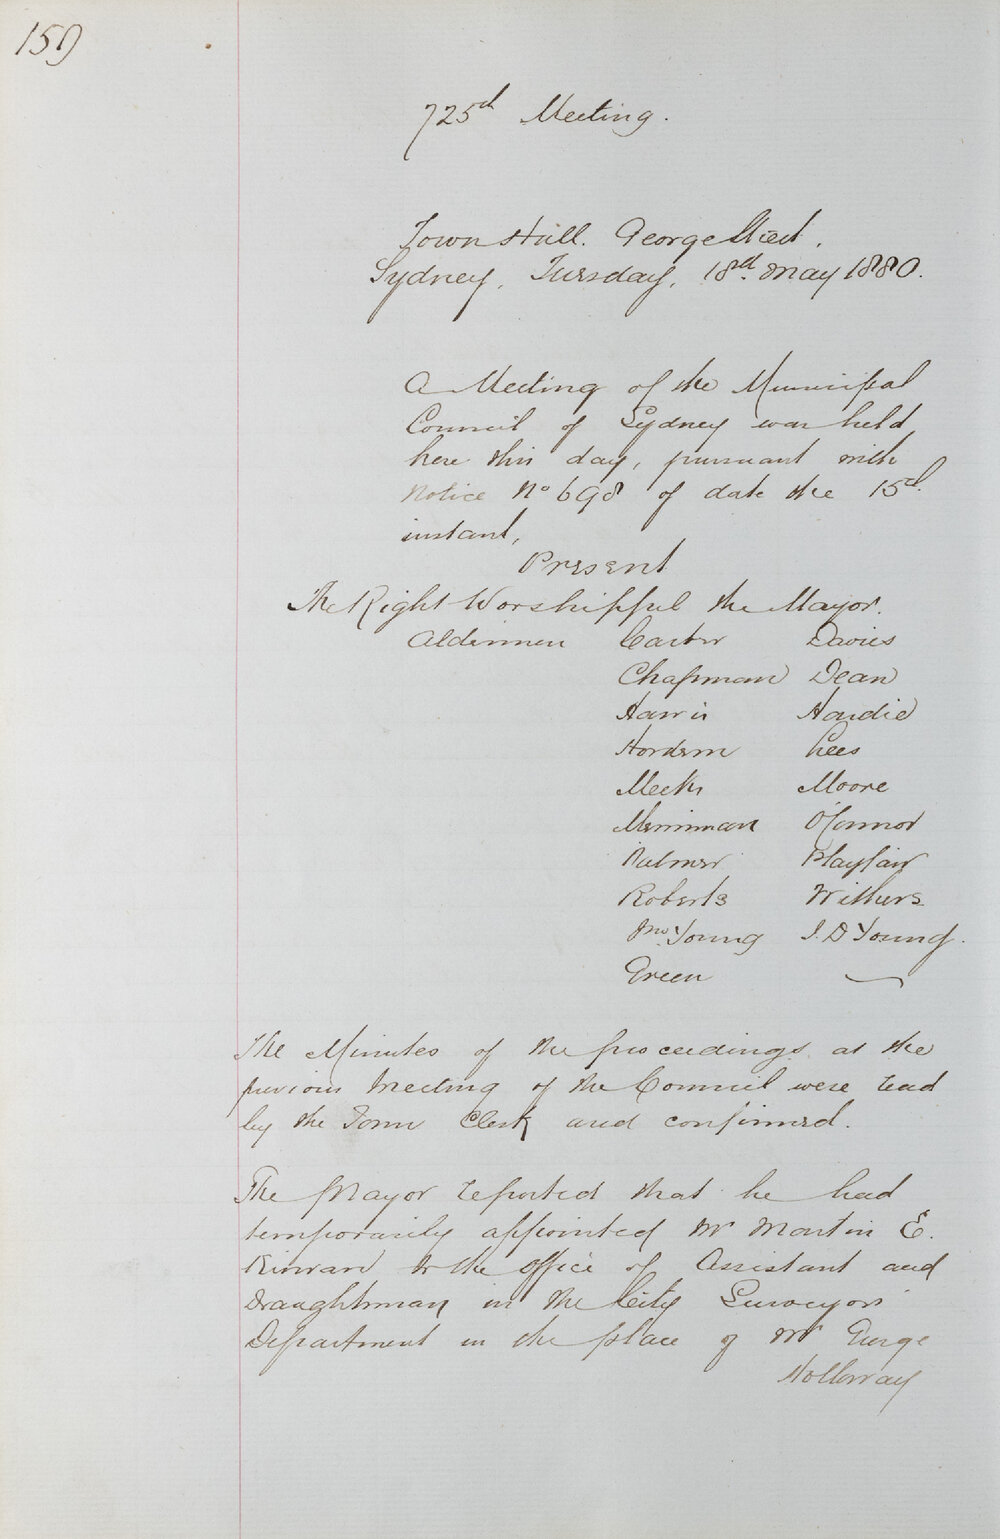 159
725th Meeting.
Town Hall. George Street.
Sydney, Tuesday, 18th May 1880.
A Meeting of the Municipal
Council of Sydney was held
here this day, pursuant with
Notice No 698 of date the 15th
instant,
Present
The Right Worshipful the Mayor.
Aldermen Carter Davies
Chapman Dean
Harris Hardie
Hordern Lees
Meeks Moore
Merriman O'Connor
Palmer Playfair
Roberts Withers
Jno. Young J. D Young.
Green —
The Minutes of the proceedings at the
previous Meeting of the Council were read
by the Town Clerk and confirmed.
The Mayor reported that he had
temporarily appointed Mr Martin E.
Kirwan to the office of Assistant and
Draughtsman in the City Surveyors'
Department in the place of Mr George
Holloway